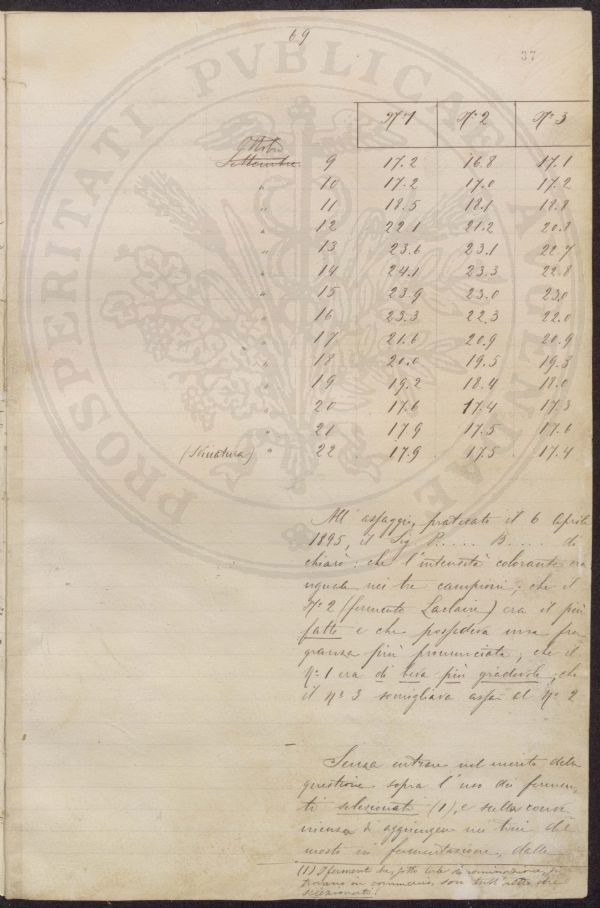 69
37
Nº 1 Nº 2 Nº 3
Ottobre
Settembre 9 17.2 16.8 17.1
" 10 17.2 17.0 17.2
" 11 18.5 18.1 18.8
" 12 22.1 21.2 20.8
" 13 23.6 23.1 22.7
" 14 24.1 23.3 22.8
" 15 23.9 23.0 23.0
" 16 23.3 22.3 22.0
" 17 21.6 20.9 20.9
" 18 20.0 19.5 19.3
" 19 19.2 18.4 18.0
" 20 17.6 17.4 17.3
" 21 17.9 17.5 17.6
(Svinatura) " 22 17.9 17.5 17.4
All' assaggio, praticato il 6 Aprile
1895, il Sig. P..... B..... di
chiarò: che l'intensità colorante era
uguale nei tre campioni; che il
Nº 2 (fermento Laclaire) era il più
fatto e che possedeva una fra
granza più pronunciata; che il
Nº 1 era di beva più gradevole; che
il Nº 3 somigliava assai al Nº 2
Senza entrare nel merito della
questione sopra l'uso dei fermen
ti selezionati (1), e sulla conve
nienza di aggiungere nei tini di
mosto in fermentazione, delle
(1) I fermenti che, sotto tale denominazione, si
trovano in commercio, son tutt'altro che
selezionati!
PROSPERITATI PVBLICAE AVGENDAE